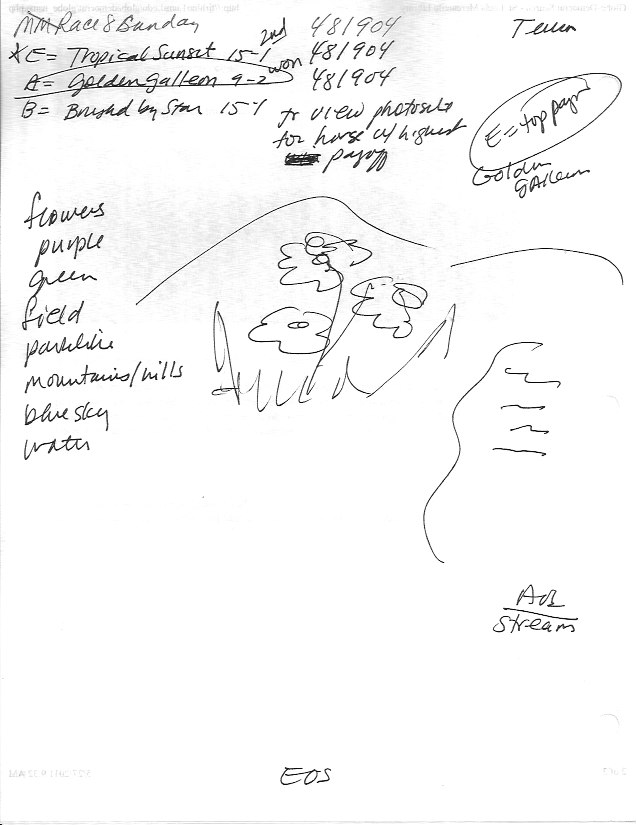 MM Race 8 Sunday 481904
* E = Tropical Sunset 15-1 2nd 481904
A = Golden Galleon 9-2 won 481904
B = Brushed by Star 15-1
to view photosite
for horse w/ highest
payoff
E = top payr
Golden
Galleon
flowers
purple
green
field
parklike
mountains/hills
blue sky
water
AOL
streams
EOS